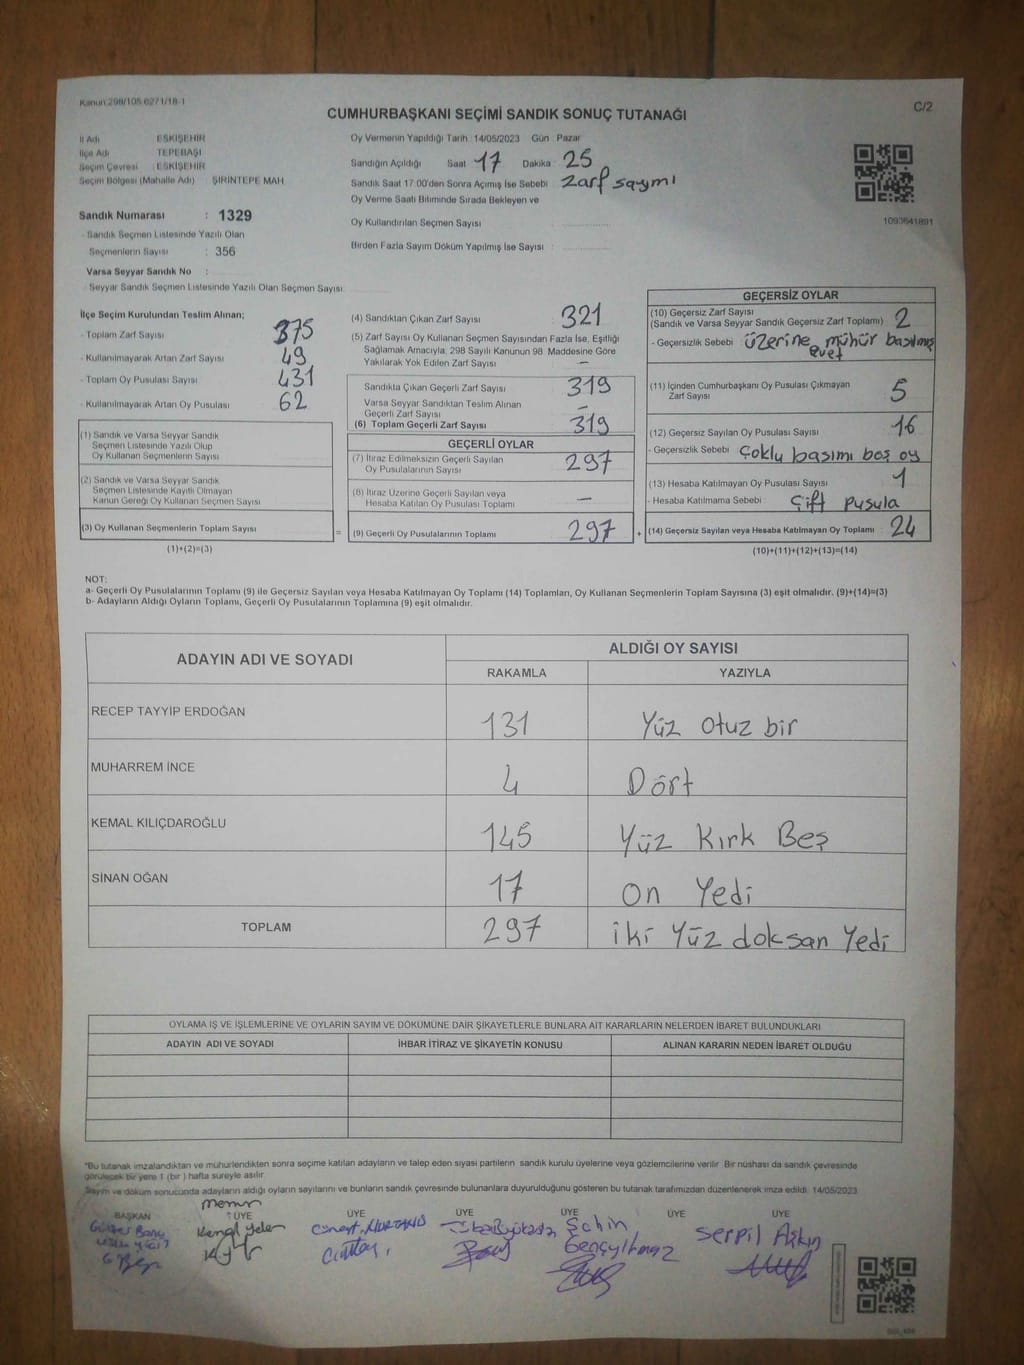 Kanun 298/105 6271/18-1
C/2
CUMHURBAŞKANI SEÇİMİ SANDIK SONUÇ TUTANAĞI
İl Adı : ESKİŞEHİR
İlçe Adı : TEPEBAŞI
Seçim Çevresi : ESKİŞEHİR
Seçim Bölgesi (Mahalle Adı) : ŞİRİNTEPE MAH
Sandık Numarası : 1329
- Sandık Seçmen Listesinde Yazılı Olan
Seçmenlerin Sayısı : 356
Varsa Seyyar Sandık No :
- Seyyar Sandık Seçmen Listesinde Yazılı Olan Seçmen Sayısı:
Oy Vermenin Yapıldığı Tarih 14/05/2023 Gün Pazar
Sandığın Açıldığı Saat 17 Dakika 25
Sandık Saat 17:00'den Sonra Açımış İse Sebebi Zarf sayımı
Oy Verme Saati Bitiminde Sırada Bekleyen ve
Oy Kullandırılan Seçmen Sayısı
Birden Fazla Sayım Döküm Yapılmış İse Sayısı :
1093641891
İlçe Seçim Kurulundan Teslim Alınan;
- Toplam Zarf Sayısı : 375
- Kullanılmayarak Artan Zarf Sayısı : 49
- Toplam Oy Pusulası Sayısı : 431
- Kullanılmayarak Artan Oy Pusulası : 62
(1) Sandık ve Varsa Seyyar Sandık
Seçmen Listesinde Yazılı Olup
Oy Kullanan Seçmenlerin Sayısı
(2) Sandık ve Varsa Seyyar Sandık
Seçmen Listesinde Kayıtlı Olmayan
Kanun Gereği Oy Kullanan Seçmen Sayısı
(3) Oy Kullanan Seçmenlerin Toplam Sayısı =
(1)+(2)=(3)
(4) Sandıktan Çıkan Zarf Sayısı 321
(5) Zarf Sayısı Oy Kullanan Seçmen Sayısından Fazla İse, Eşitliği
Sağlamak Amacıyla, 298 Sayılı Kanunun 98. Maddesine Göre
Yakılarak Yok Edilen Zarf Sayısı : —
Sandıkta Çıkan Geçerli Zarf Sayısı 319
Varsa Seyyar Sandıktan Teslim Alınan
Geçerli Zarf Sayısı —
(6) Toplam Geçerli Zarf Sayısı 319
GEÇERLİ OYLAR
(7) İtiraz Edilmeksizin Geçerli Sayılan
Oy Pusulalarının Sayısı 297
(8) İtiraz Üzerine Geçerli Sayılan veya
Hesaba Katılan Oy Pusulası Toplamı —
(9) Geçerli Oy Pusulalarının Toplamı 297 +
GEÇERSİZ OYLAR
(10) Geçersiz Zarf Sayısı
(Sandık ve Varsa Seyyar Sandık Geçersiz Zarf Toplamı) 2
- Geçersizlik Sebebi : üzerine mühür basılmış
evet
(11) İçinden Cumhurbaşkanı Oy Pusulası Çıkmayan
Zarf Sayısı 5
(12) Geçersiz Sayılan Oy Pusulası Sayısı 16
- Geçersizlik Sebebi Çoklu basımı boş oy
(13) Hesaba Katılmayan Oy Pusulası Sayısı 1
- Hesaba Katılmama Sebebi : Çift pusula
(14) Geçersiz Sayılan veya Hesaba Katılmayan Oy Toplamı : 24
(10)+(11)+(12)+(13)=(14)
NOT:
a- Geçerli Oy Pusulalarının Toplamı (9) ile Geçersiz Sayılan veya Hesaba Katılmayan Oy Toplamı (14) Toplamları, Oy Kullanan Seçmenlerin Toplam Sayısına (3) eşit olmalıdır. (9)+(14)=(3)
b- Adayların Aldığı Oyların Toplamı, Geçerli Oy Pusulalarının Toplamına (9) eşit olmalıdır.
ADAYIN ADI VE SOYADI ALDIĞI OY SAYISI
RAKAMLA YAZIYLA
RECEP TAYYİP ERDOĞAN 131 Yüz otuz bir
MUHARREM İNCE 4 Dört
KEMAL KILIÇDAROĞLU 145 Yüz Kırk Beş
SİNAN OĞAN 17 On Yedi
TOPLAM 297 iki Yüz doksan Yedi
OYLAMA İŞ VE İŞLEMLERİNE VE OYLARIN SAYIM VE DÖKÜMÜNE DAİR ŞİKAYETLERLE BUNLARA AİT KARARLARIN NELERDEN İBARET BULUNDUKLARI
ADAYIN ADI VE SOYADI İHBAR İTİRAZ VE ŞİKAYETİN KONUSU ALINAN KARARIN NEDEN İBARET OLDUĞU
*Bu tutanak imzalandıktan ve mühürlendikten sonra seçime katılan adayların ve talep eden siyasi partilerin sandık kurulu üyelerine veya gözlemcilerine verilir. Bir nüshası da sandık çevresinde
görülecek bir yere 1 (bir) hafta süreyle asılır.
Sayım ve döküm sonucunda adayların aldığı oyların sayılarını ve bunların sandık çevresinde bulunanlara duyurulduğunu gösteren bu tutanak tarafımızdan düzenlenerek imza edildi. 14/05/2023
memur
BAŞKAN ÜYE ÜYE ÜYE ÜYE ÜYE ÜYE
Şahin Serpil Aşkın
Gençyılmaz